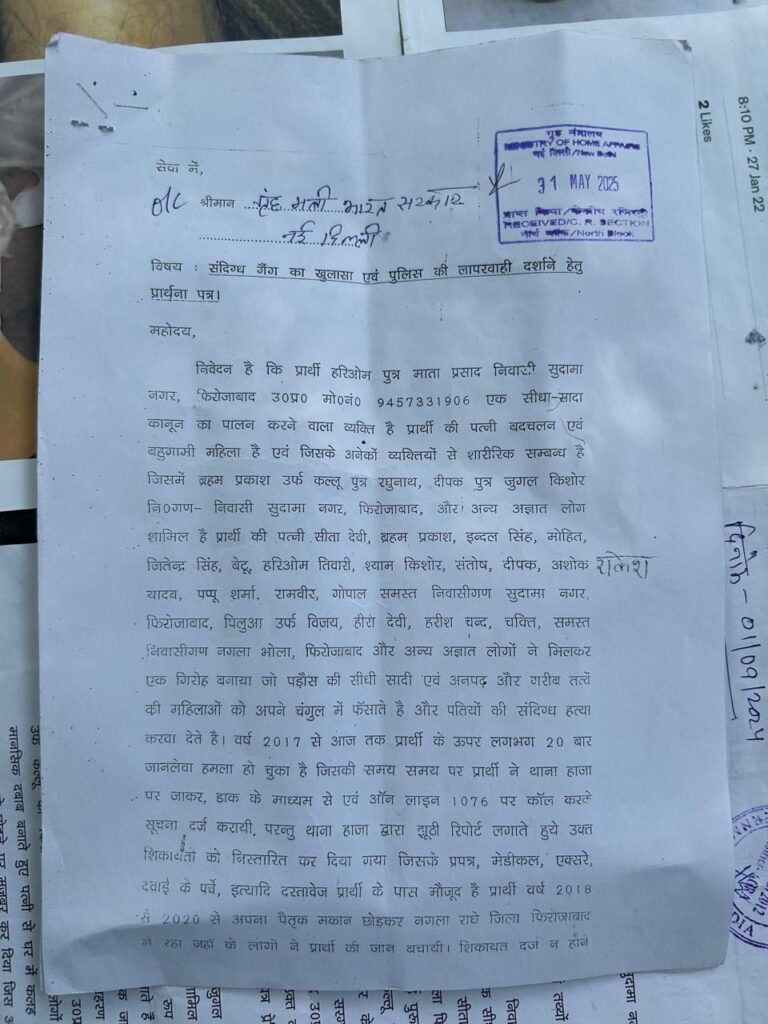 सेवा में,
गृह मंत्रालय
MINISTRY OF HOME AFFAIRS
नई दिल्ली/New Delhi
31 MAY 2025
RECEIVED/C. R. SECTION
नार्थ ब्लॉक/North Block
O/C श्रीमान गृह मन्त्री भारत सरकार
नई दिल्ली
विषय : संदिग्ध गैंग का खुलासा एवं पुलिस की लापरवाही दर्शाने हेतु
प्रार्थना पत्र।
महोदय,
निवेदन है कि प्रार्थी हरिओम पुत्र माता प्रसाद निवासी सुदामा
नगर, फिरोजाबाद उ0प्र0 मो0नं0 9457331906 एक सीधा-सादा
कानून का पालन करने वाला व्यक्ति है प्रार्थी की पत्नी बदचलन एवं
बहुगामी महिला है एवं जिसके अनेकों व्यक्तियों से शारीरिक सम्बन्ध है
जिसमें ब्रहम प्रकाश उर्फ कल्लू पुत्र रघुनाथ, दीपक पुत्र जुगल किशोर
नि0गण- निवासी सुदामा नगर, फिरोजाबाद, और अन्य अज्ञात लोग
शामिल है प्रार्थी की पत्नी सीता देवी, ब्रहम प्रकाश, इन्दल सिंह, मोहित,
जितेन्द्र सिंह, बेटू, हरिओम तिवारी, श्याम किशोर, संतोष, दीपक, अशोक राकेश
यादव, पप्पू शर्मा, रामवीर, गोपाल समस्त निवासीगण सुदामा नगर,
फिरोजाबाद, पिलुआ उर्फ विजय, हीरा देवी, हरीश चन्द, चक्ति, समस्त
निवासीगण नगला भोला, फिरोजाबाद और अन्य अज्ञात लोगों ने मिलकर
एक गिरोह बनाया जो पड़ौस की सीधी सादी एवं अनपढ़ और गरीब तत्वे
की महिलाओं को अपने चंगुल में फॅसाते है और पतियों की संदिग्ध हत्या
करवा देते है। वर्ष 2017 से आज तक प्रार्थी के ऊपर लगभग 20 बार
जानलेवा हमला हो चुका है जिसकी समय समय पर प्रार्थी ने थाना हाजा
पर जाकर, डाक के माध्यम से एवं ऑन लाइन 1076 पर कॉल करके
सूचना दर्ज करायी, परन्तु थाना हाजा द्वारा झूठी रिपोर्ट लगाते हुये उक्त
शिकायतों को निस्तारित कर दिया गया जिसके प्रपत्र, मेडीकल, एक्सरे,
दवाई के पर्चे, इत्यादि दस्तावेज प्रार्थी के पास मौजूद है प्रार्थी वर्ष 2018
से 2020 से अपना पैतृक मकान छोड़कर नगला राधे जिला फिरोजाबाद
में रहा जहाँ के लोगों ने प्रार्थी की जान बचायी। शिकायत दर्ज न होने
8:10 PM · 27 Jan 22
2 Likes
दिनांक - 01/09/2024